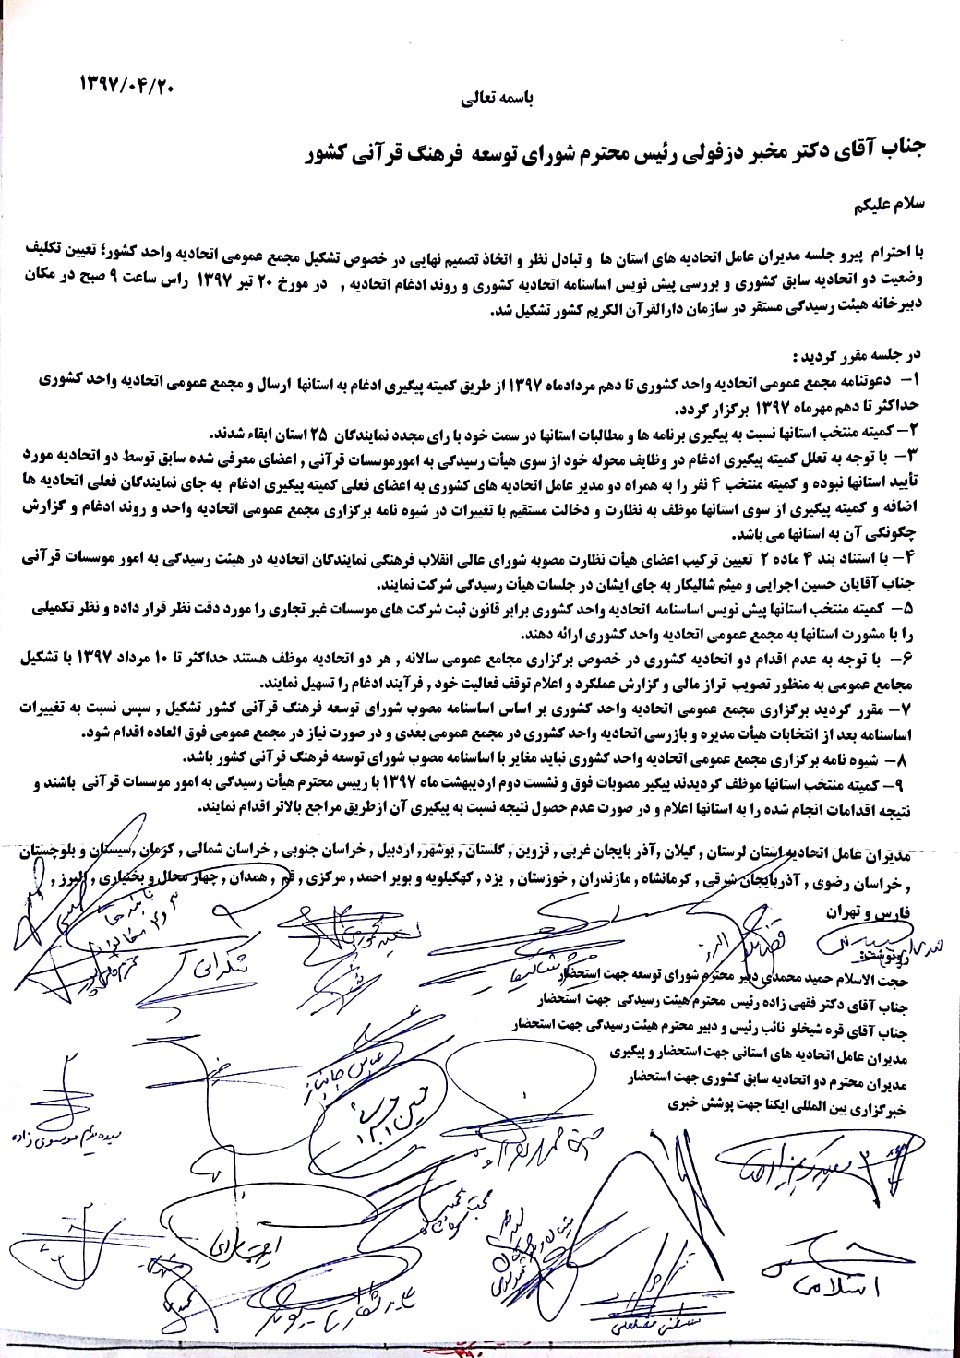 ۱۳۹۷/۰۴/۲۰
باسمه تعالی
جناب آقای دکتر مخبر دزفولی رئیس محترم شورای توسعه فرهنگ قرآنی کشور
سلام علیکم
با احترام پیرو جلسه مدیران عامل اتحادیه های استان ها و تبادل نظر و اتخاذ تصمیم نهایی در خصوص تشکیل مجمع عمومی اتحادیه واحد کشور؛ تعیین تکلیف
وضعیت دو اتحادیه سابق کشوری و بررسی پیش نویس اساسنامه اتحادیه کشوری و روند ادغام اتحادیه , در مورخ ۲۰ تیر ۱۳۹۷ راس ساعت ۹ صبح در مکان
دبیرخانه هیئت رسیدگی مستقر در سازمان دارالقرآن الکریم کشور تشکیل شد.
در جلسه مقرر گردید :
۱- دعوتنامه مجمع عمومی اتحادیه واحد کشوری تا دهم مردادماه ۱۳۹۷ از طریق کمیته پیگیری ادغام به استانها ارسال و مجمع عمومی اتحادیه واحد کشوری
حداکثر تا دهم مهرماه ۱۳۹۷ برگزار گردد.
۲- کمیته منتخب استانها نسبت به پیگیری برنامه ها و مطالبات استانها در سمت خود با رای مجدد نمایندگان ۲۵ استان ابقاء شدند.
۳- با توجه به تعلل کمیته پیگیری ادغام در وظایف محوله خود از سوی هیأت رسیدگی به امور موسسات قرآنی , اعضای معرفی شده سابق توسط دو اتحادیه مورد
تأیید استانها نبوده و کمیته منتخب ۴ نفر را به همراه دو مدیر عامل اتحادیه های کشوری به اعضای فعلی کمیته پیگیری ادغام به جای نمایندگان فعلی اتحادیه ها
اضافه و کمیته پیگیری از سوی استانها موظف به نظارت و دخالت مستقیم با تغییرات در شیوه نامه برگزاری مجمع عمومی اتحادیه واحد و روند ادغام و گزارش
چگونگی آن به استانها می باشد.
۴- با استناد بند ۴ ماده ۲ تعیین ترکیب اعضای هیأت نظارت مصوبه شورای عالی انقلاب فرهنگی نمایندگان اتحادیه در هیئت رسیدگی به امور موسسات قرآنی
جناب آقایان حسین اجرایی و میثم شالیکار به جای ایشان در جلسات هیأت رسیدگی شرکت نمایند.
۵- کمیته منتخب استانها پیش نویس اساسنامه اتحادیه واحد کشوری برابر قانون ثبت شرکت های موسسات غیر تجاری را مورد دقت نظر قرار داده و نظر تکمیلی
را با مشورت استانها به مجمع عمومی اتحادیه واحد کشوری ارائه دهند.
۶- با توجه به عدم اقدام دو اتحادیه کشوری در خصوص برگزاری مجامع عمومی سالانه , هر دو اتحادیه موظف هستند حداکثر تا ۱۰ مرداد ۱۳۹۷ با تشکیل
مجامع عمومی به منظور تصویب تراز مالی و گزارش عملکرد و اعلام توقف فعالیت خود , فرآیند ادغام را تسهیل نمایند.
۷- مقرر گردید برگزاری مجمع عمومی اتحادیه واحد کشوری بر اساس اساسنامه مصوب شورای توسعه فرهنگ قرآنی کشور تشکیل , سپس نسبت به تغییرات
اساسنامه بعد از انتخابات هیأت مدیره و بازرسی اتحادیه واحد کشوری در مجمع عمومی بعدی و در صورت نیاز در مجمع عمومی فوق العاده اقدام شود.
۸- شیوه نامه برگزاری مجمع عمومی اتحادیه واحد کشوری نباید مغایر با اساسنامه مصوب شورای توسعه فرهنگ قرآنی کشور باشد.
۹- کمیته منتخب استانها موظف گردیدند پیگیر مصوبات فوق و نشست دوم اردیبهشت ماه ۱۳۹۷ با رییس محترم هیأت رسیدگی به امور موسسات قرآنی باشند و
نتیجه اقدامات انجام شده را به استانها اعلام و در صورت عدم حصول نتیجه نسبت به پیگیری آن ازطریق مراجع بالاتر اقدام نمایند.
مدیران عامل اتحادیه استان لرستان , گیلان ,آذر بایجان غربی , قزوین , گلستان , بوشهر, اردبیل , خراسان جنوبی , خراسان شمالی , کرمان ,سیستان و بلوچستان
, خراسان رضوی , آذربایجان شرقی , کرمانشاه , مازندران , خوزستان , یزد , کهگیلویه و بویر احمد, مرکزی , قم , همدان , چهار محال و بختیاری , البرز ,
فارس و تهران
رونوشت:
حجت الاسلام حمید محمدی دبیر محترم شورای توسعه جهت استحضار
جناب آقای دکتر فقهی زاده رئیس محترم هیئت رسیدگی جهت استحضار
جناب آقای قره شیخلو نائب رئیس و دبیر محترم هیئت رسیدگی جهت استحضار
مدیران عامل اتحادیه های استانی جهت استحضار و پیگیری
مدیران محترم دو اتحادیه سابق کشوری جهت استحضار
خبرگزاری بین المللی ایکنا جهت پوشش خبری
البرز
شکرانی
سیده مریم موسوی زاده
اسلامی